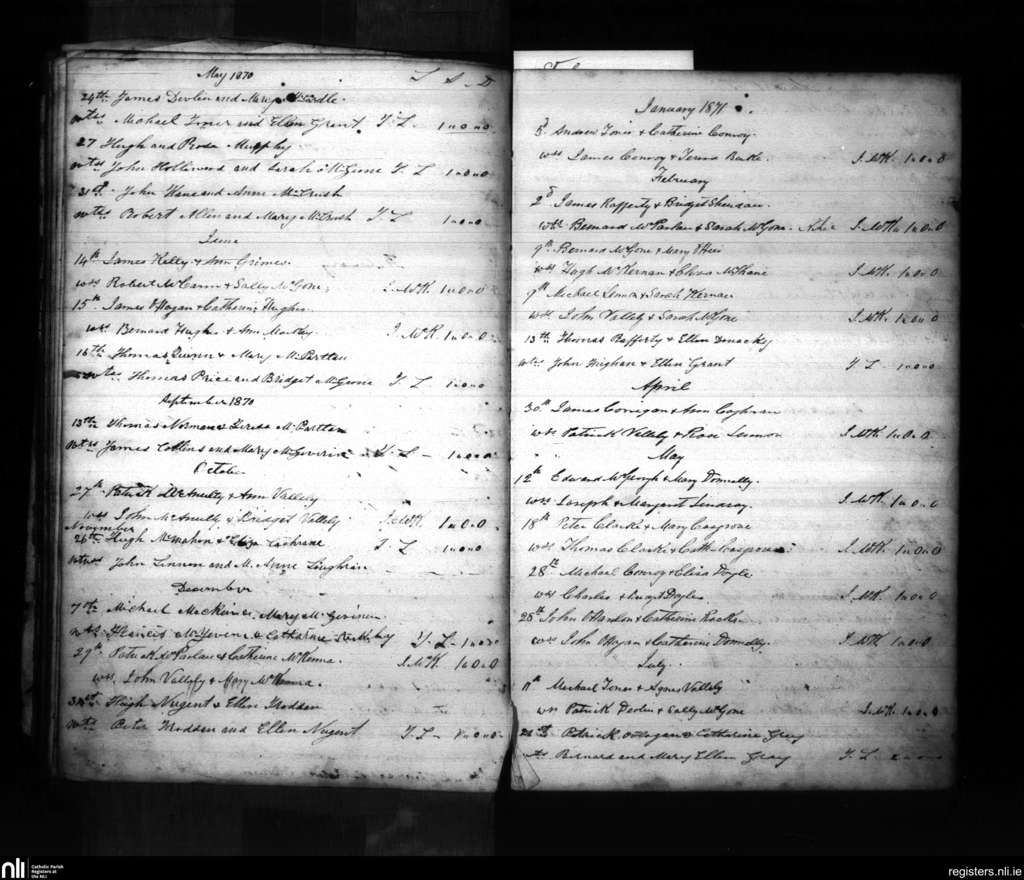 May 1870 L S D
24th James Devlin and Mary McArdle
wtss Michael Toner and Ellen Grant T. L 1 " 0 " 0
27 Hugh and Rosa Murphy
wtss John Hollywood and Sarah McGeone T L 1 " 0 " 0
31st John Kane and Anne McCrush
wtss Robert Allen and Mary McCrush T. L 1 " 0 " 0
June
14th James Kelly & Ann Grimes
wss Robert McCann & Sally McGone J. McK. 1 " 0 " 0
15th James O'Hagan & Catherine Hughes
wss Bernard Hughes & Ann J. McK. 1 " 0 " 0
16th Thomas Quinn & Mary McPartlan
wtss Thomas Price and Bridget McGeone T. L 1 " 0 " 0
September 1870
13th Thomas Teresa McPartlan
wtss James Collins and Mary McGeverin T. L 1 " 0 " 0
October
27th Patrick McAnulty & Ann Vallely
wss John McAnulty & Bridget Vallely J. McK. 1 " 0 " 0
November
26th Hugh McMahon & Eliza Cochrane T. L 1 " 0 " 0
wtss John Linnen and M. Anne Linghran
December
7th Michael Mary McGeverin
wtss Francis & Catharine T. L 1 " 0 " 0
29th Patrick McParlan & Catherine McKenna. J. McK. 1 " 0 " 0
wss. John Vallely & Mary McKenna.
31st Hugh Nugent & Ellen Madden
wtss Peter Madden and Ellen Nugent T. L 1 " 0 " 0
January 1871
5 Andrew Toner & Catherine Conroy
wss James Conroy & Teresa J. McK. 1 " 0 " 0
February
2d James Rafferty & Bridget Sheridan.
wss Bernard McParlan & Sarah McGone. J. McK. 1 " 0 " 0
9th Bernard McGone & Mary O'Hare
wss Hugh McKernan & McShane J. McK. 1 " 0 " 0
9th Michael Lennon & Sarah Kernan
wss John Vallely & Sarah McGone J. McK. 1 " 0 " 0
13th Thomas Rafferty & Ellen Donachy
wtss John Highan & Ellen Grant T L 1 " 0 " 0
April
30th James Corrigan & Ann Coghran
wss Patrick Vallely & Rose Lennon J. McK. 1 " 0 " 0
May
12th Edward McGeough & Mary Donnelly.
wss Joseph & Margaret Lindsay. J. McK. 1 " 0 " 0
18th Peter Clarke & Mary Cosgrove
wss Thomas Clarke & Cath. Cosgrove J. McK. 1 " 0 " 0
28th Michael Conroy & Eliza Doyle
wss Charles & Doyle J. McK. 1 " 0 " 0
28th John O'Hanlon & Catherine Rocks
wss John O'Hagan & Catherine Donnelly. J. McK. 1 " 0 " 0
July
11th Michael Toner & Agnes Vallely
wss Patrick Devlin & Sally McGone J. McK. 1 " 0 " 0
Patrick O'Hagan & Catherine Grey
wtss Bernard and Mary Ellen Gray T. L
nli
Catholic Parish
Registers at
the NLI
registers.nli.ie